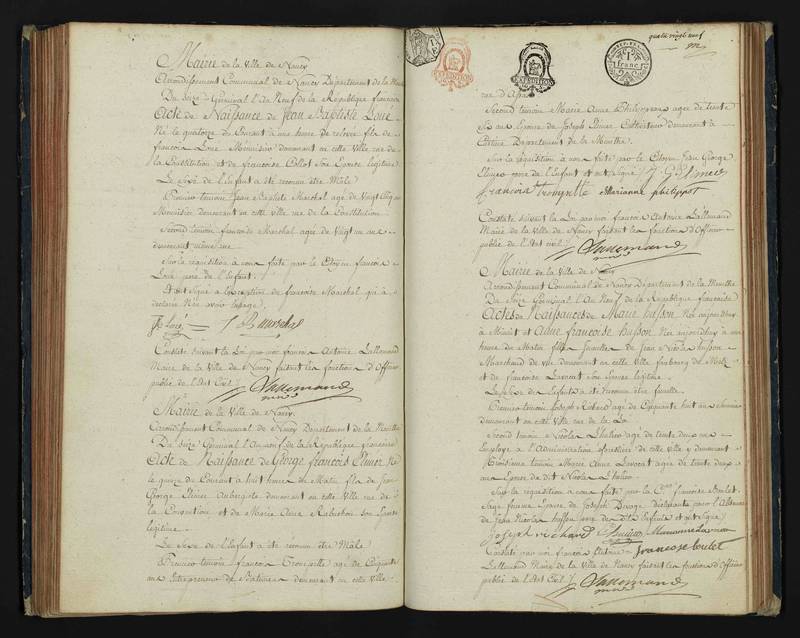 Mairie de la Ville de Nancy
Arrondissement Communal de Nancy Département de la Meurthe
Du Seize Germinal l'An Neuf de la République française
Acte de Naissance de Jean Baptiste Loué
Né le quatorze du Courant à une heure de relevée fils de
françois Loué Ménuisier demeurant en cette Ville rue de
la Constitution et de francoise Collot Son Epouse légitime
Le Sexe de l'Enfant a été reconnu être Mâle
Premier témoin Jean Baptiste Marchal agé de Vingt Cinq ans
Menuisier demeurant en cette Ville rue de la Constitution
Second témoin françoise Marchal agée de Vingt un ans
demeurant même rue
Sur la réquisition à nous faite par le Citoyen françois
Loué pere de l'Enfant
Et ont Signé à l'exception de francoise Marchal qui a
declaré Ne savoir l'usage
J B Marchal
Constaté suivant la Loi par moi françois Antoine Lallemand
Maire de la Ville de Nancy faisant les fonctions d'Officier
public de l'Etat Civil
Lallemand
Mairie de la Ville de Nancy
Arrondissement Communal de Nancy Département de la Meurthe
Du Seize Germinal l'An neuf de la République française
Acte de Naissance de George françois Elimer Né
le quinze du Courant à huit heures du Matin fils de Jean
George Elimer Aubergiste demeurant en cette Ville rue de
la Convention et de Marie Anne Son Epouse
légitime
Le Sexe de l'Enfant a été reconnu être Mâle
Premier témoin françois Trompette agé de Cinquante
ans Entrepreneur de Batimens demeurant en cette Ville
quatre vingt neuf
1
franc
rue d'
Second témoin Marie Anne Philippot agée de trente
six ans Epouse de Joseph Elimer Cultivateur demeurant à
Département de la Meurthe
Sur la réquisition à nous faite par le Citoyen Jean George
Elimer pere de l'Enfant et ont Signé J G Elimer
françois trompette Marianne philippot
Constaté suivant la Loi par moi françois Antoine Lallemand
Maire de la Ville de Nancy faisant les fonctions d'Officier
public de l'Etat civil
Lallemand
Mairie de la Ville de Nancy
Arrondissement Communal de Nancy Département de la Meurthe
Du Seize Germinal l'An Neuf de la République française
Actes de Naissances de Marie husson Née aujourdhuy
à Minuit et Anne francoise husson Née aujourdhuy à une
heure du Matin filles Jumelles de Jean Nicolas husson
Marchand de vin demeurant en cette Ville faubourg de Metz
et de francoise Son Epouse légitime
Le Sexe des Enfants a été reconnu être femelle
Premier témoin Joseph Richard agé de Cinquante huit ans
demeurant en cette Ville rue de la
Second témoin Nicolas agé de trente deux ans
Employé à l'Administration forestière de cette Ville y demeurant
Troisième témoin Marie Anne agée de trente deux
ans Epouse de dit Nicolas
Sur la réquisition à nous faite par la Cne francoise Boulet
Sage femme Epouse de Joseph pour l'Absence
de Jean Nicolas husson pere des dits Enfants et ont Signé
joseph richard
Constaté par moi françois Antoine francoise boulet
Lallemand Maire de la Ville de Nancy faisant les fonctions d'Officier
public de l'Etat Civil
Lallemand